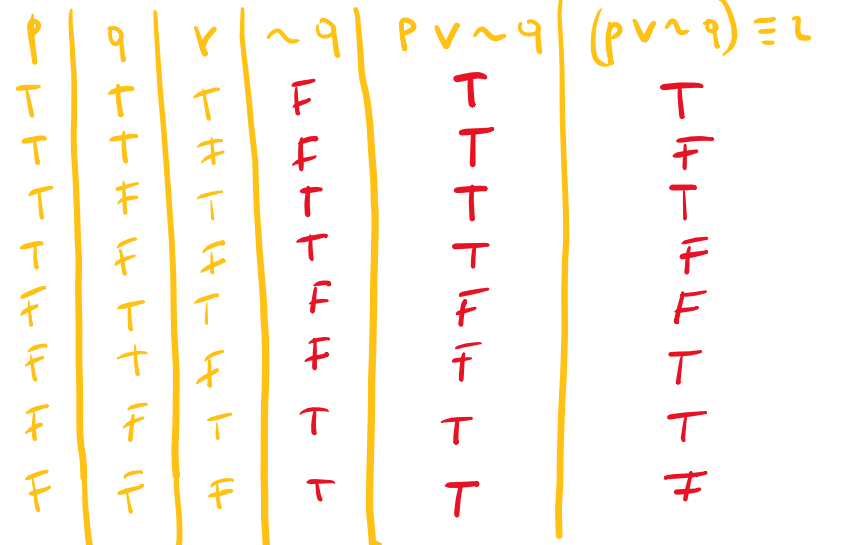 p q r ~q p v ~q (p v ~q) ≡ r
T T T F T T
T T F F T F
T F T T T T
T F F T T F
F T T F F F
F T F F F T
F F T T T T
F F F T T F